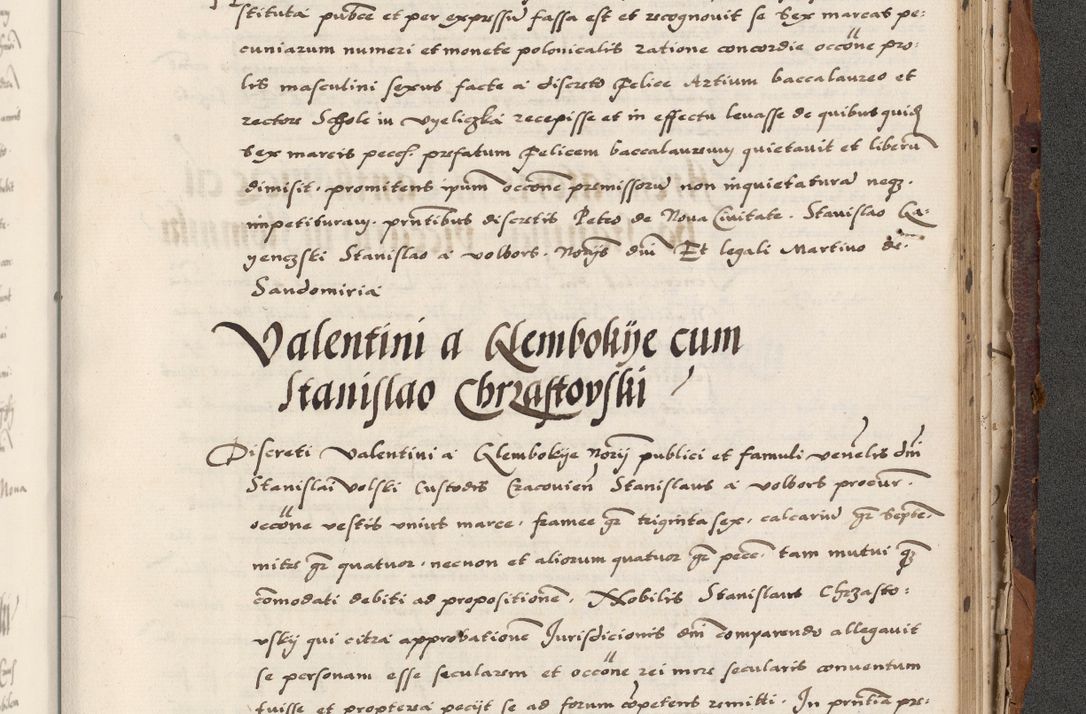 stituta publice et per expressum fassa est et recognovit se sex marcas pe-
cuniarum numeri et monete polonicalis ratione concordie occone pro-
lis masculini sexus facte a discreto Felice Artium baccalaureo et
rectore Schole in Vyeliczka recepisse et in effectu levasse de quibus quid
sex marcis pecc. prefatum Felicem baccalaureum quietavit et liberum
dimisit. promittens ipum occone premissorum non inquietatura neqz.
impetituram. prntibus discretis Petro de Nova Civitate. Stanislao Ca-
yenczski Stanislao a volbors. Noriis dni Et legali Martino de.
Sandomiria
Valentini a Klembokije cum
Stanislao Chrzastovski
Discreti Valentini a Klembokije Norij publici et famuli venelis dni
Stanislai Volski Custodis Cracovien Stanislaus a volbors procur.
occone vestis unius marce. framee gr triginta sex. calcarium gr septe-
mitre gr quatuor. necnon et aliorum quatuor gr pecc. tam mutui qz
comodati debiti ad propositione. Nobilis Stanislaus Chrzasto-
vskij qui citra approbatione Jurisdicionis dni comparendo allegavit
se personam esse secularem et occone rei mere secularis conventum
fuisse et propterea pecijt se ad forum copetens remitti. In prntia pre-